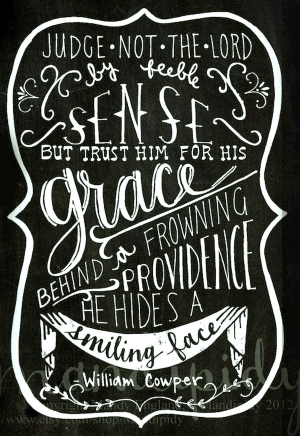 JUDGE·NOT·THE·LORD
by feeble
SENSE
BUT TRUST HIM FOR HIS
grace
BEHIND a FROWNING
PROVIDENCE
HE HIDES A
smiling face
William Cowper